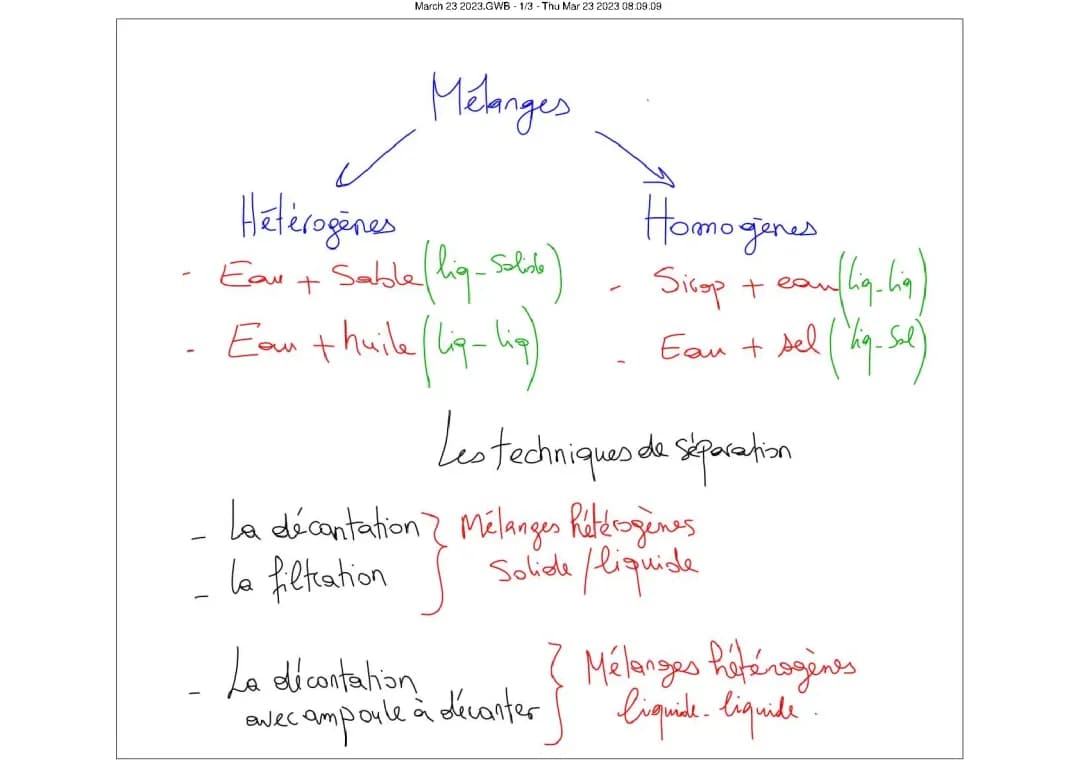 March 23 2023.GWB - 1/3 - Thu Mar 23 2023 08:09:09
Mélanges
Hétérogènes
Homogènes
- Eau + Sable (liq-Solide)
- Sirop + eau (liq-liq)
- Eau + huile (liq-liq)
- Eau + sel (liq-Sol)
Les techniques de séparation
- La décantation } Mélanges hétérogènes
- la filtration } Solide/liquide
- La décantation } Mélanges hétérogènes
avec ampoule à décanter } liquide-liquide.